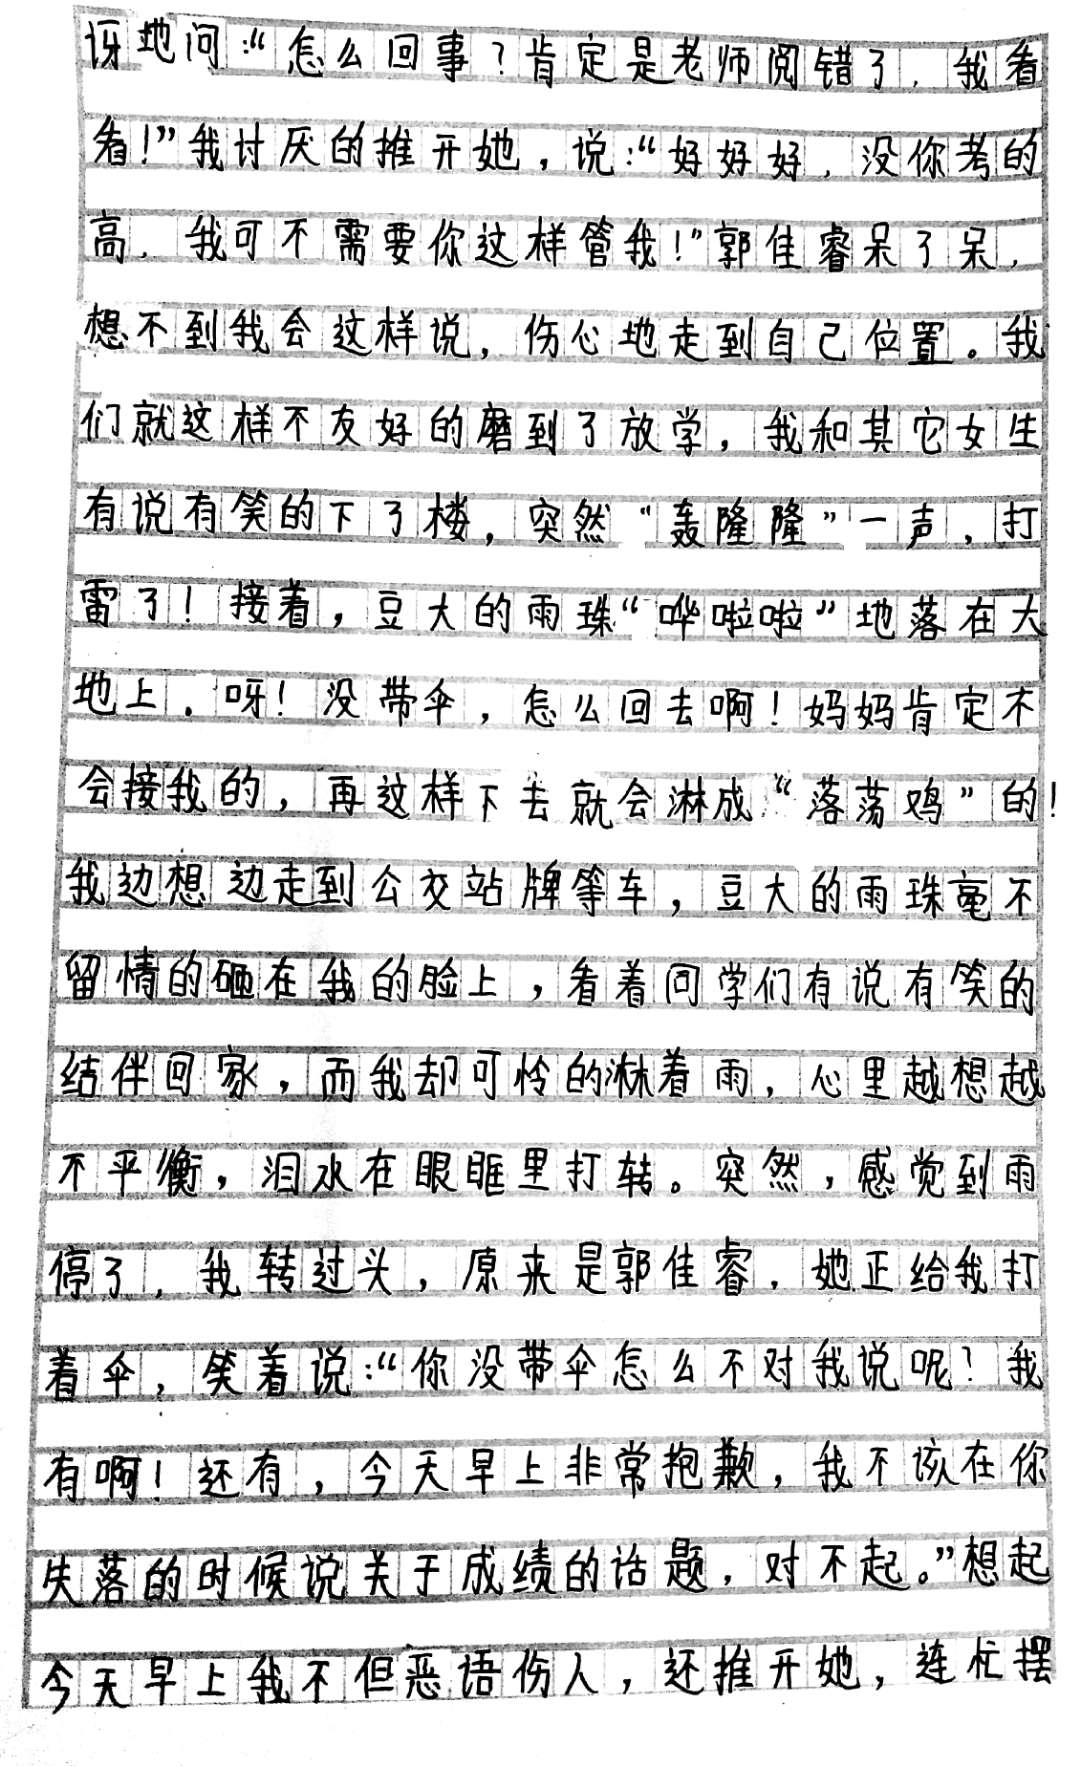 讶地问:“怎么回事?肯定是老师阅错了,我看
看!”我讨厌的推开她,说:“好好好,没你考的
高,我可不需要你这样管我!”郭佳睿呆了呆,
想不到我会这样说,伤心地走到自己位置。我
们就这样不友好的磨到了放学,我和其它女生
有说有笑的下了楼,突然“轰隆隆”一声,打
雷了!接着,豆大的雨珠“哗啦啦”地落在大
地上。呀!没带伞,怎么回去啊!妈妈肯定不
会接我的,再这样下去就会淋成“落荡鸡”的!
我边想边走到公交站牌等车,豆大的雨珠毫不
留情的砸在我的脸上,看着同学们有说有笑的
结伴回家,而我却可怜的淋着雨,心里越想越
不平衡,泪水在眼眶里打转。突然,感觉到雨
停了,我转过头,原来是郭佳睿,她正给我打
着伞,笑着说:“你没带伞怎么不对我说呢?我
有啊!还有,今天早上非常抱歉,我不该在你
失落的时候说关于成绩的话题,对不起。”想起
今天早上我不但恶语伤人,还推开她,连忙摆